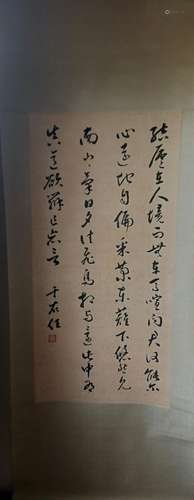 結廬在人境而無車馬喧問君何能爾
心遠地自偏采菊東籬下悠然見
南山〻氣日夕佳飛鳥相與還此中有
真意欲辨已忘言 于右任